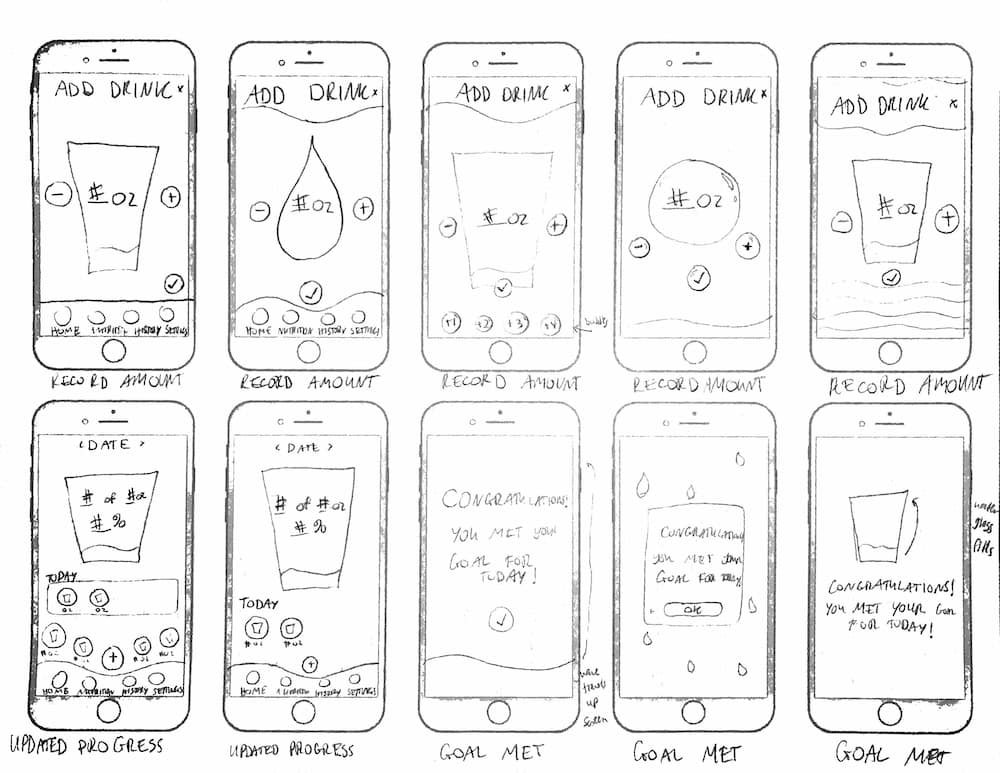 ADD DRINK x
# OZ
HOME NUTRITION HISTORY SETTINGS
RECORD AMOUNT
ADD DRINK x
# OZ
HOME NUTRITION HISTORY SETTINGS
RECORD AMOUNT
ADD DRINK x
# OZ
+1 +2 +3 +4
RECORD AMOUNT
ADD DRINK x
# OZ
RECORD AMOUNT
ADD DRINK x
# OZ
RECORD AMOUNT
< DATE >
# of #oz
# %
TODAY
OZ OZ
#OZ #OZ #OZ #OZ
HOME NUTRITION HISTORY SETTINGS
UPDATED PROGRESS
< DATE >
# of #oz
# %
TODAY
#OZ #OZ
HOME NUTRITION HISTORY SETTINGS
UPDATED PROGRESS
CONGRATULATIONS!
YOU MET YOUR
GOAL FOR
TODAY!
wave
travels
up
screen
GOAL MET
CONGRATULATIONS
YOU MET YOUR
GOAL FOR TODAY
OK
GOAL MET
CONGRATULATIONS!
YOU MET YOUR GOAL
FOR TODAY!
water
glass
fills
GOAL MET